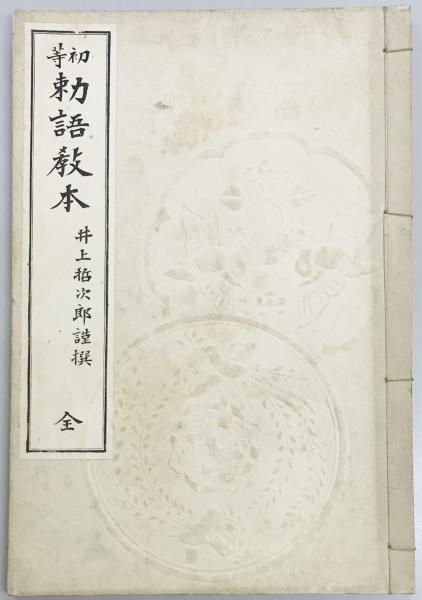 初等
勅語教本
井上哲次郎謹撰
全